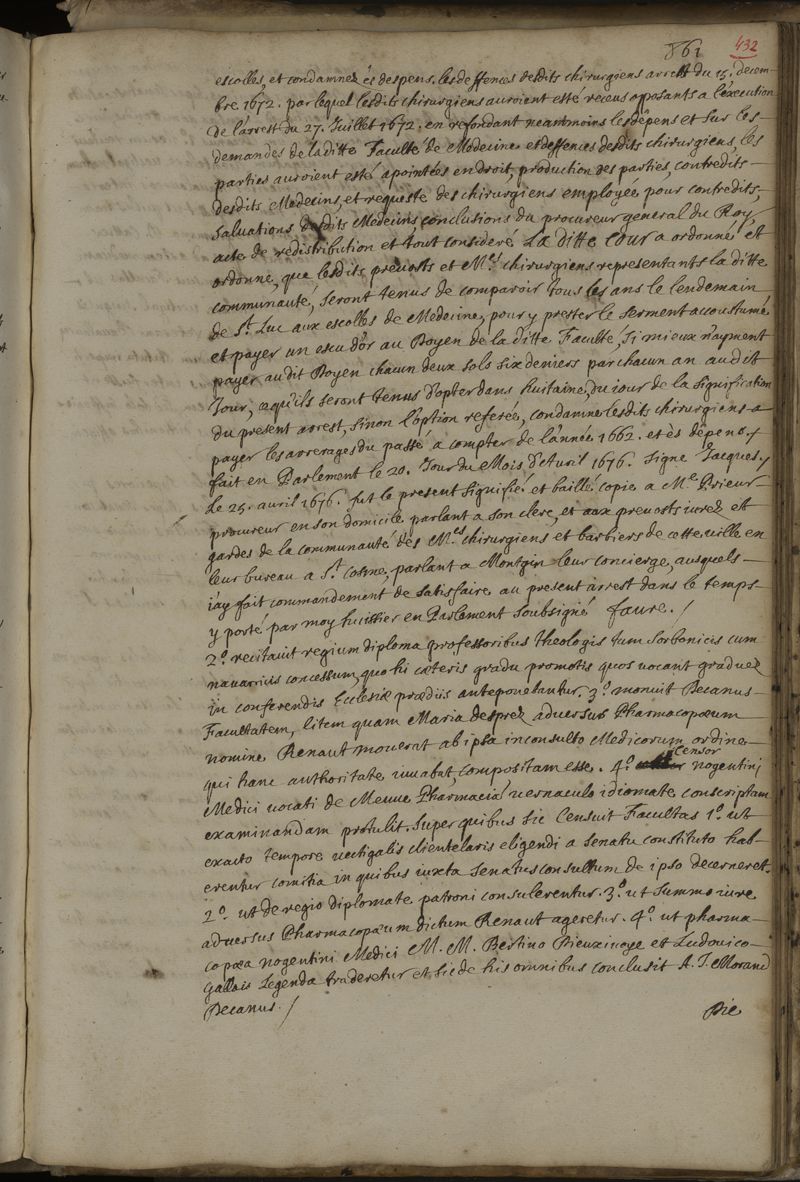 861 432
escolles, et condamnez és despens. les deffences desdits chirurgiens arrest du 15. decem-
bre 1672. par lequel lesdits chirurgiens auroient esté receus opposants a l'éxecution
de l'arrest du 27. Juillet 1672. en refondant neantmoins les dépens et sur les-
demandes de la ditte Faculté de Medecine et deffences desdits chirurgiens, les
parties auroient esté apointées en droit, production des parties, contredits-
desdits Medecins, et requeste des chirurgiens employée pour contredits,
salvations desdits Medecins, conclusions du procureur general du Roy,
acte de redistribution et tout consideré La ditte Cour a ordonné et
ordonne, que lesdits prevosts et M.es chirurgiens representants la ditte
communauté, seront tenus de comparoir tous les ans le lendemain
de S.t Luc aux escolles de Medecine, pour y prester le serment accoustumé
et payer un escu d'or au Doyen de la ditte Faculté, si mieux n'ayment
payer audit Doyen chacun deux sols six deniers par chacun an audit
Jour, ce qu'ils seront tenus d'opter dans huitaine, du iour de la signification
du present arrest, sinon l'option referée, condamne lesdits chirurgiens a
payer les arrerages du passé a compter de l'année 1662. et ès dépens./
fait en Parlement le 20. Jour du Mois d'Avril 1676. Signé Jacques./
Le 25. avril 1676. fut le present signifié et baillé copie a M.e Prieur-
procureur en son domicile parlant a son clerc, et aux prevosts iurez et
gardes de la communauté des M.es chirurgiens et barbiers de cette ville en
leur bureau a S.t Cosme, parlant a Montgin leur concierge, ausquels-
i'ay fait commandement de satisfaire au present arrest dans le temps
y porté par moy huissier en Parlement soubsigné Faure./
2.o recitavit regium diploma professoribus theologis tum Sorbonicis cum
navarricis concessum, quo hi cæteris gradu promotis quos vocant graduez
in conferendis Ecclesiæ prædiis anteponebantur. 3.o monuit Decanus-
Facultatem, litem quam Maria desprez adversus Pharmacopæum
nomine Renaut moverat ab ipsa inconsulto Medicorum ordine-
qui hanc authoritate iuvabat, compositam esse. 4.o Censor nogentini
Medici vocati de Meuve Pharmaciâ vernaculo idiomate conscriptam
examinandam protulit. Super quibus sic censuit Facultas 1.o ut
exacto tempore vectigalis clientelaris eligendi a senatu constituto hab-
erentur comitia in quibus iuxta senatusconsultum de ipso decerneret.
2.o ut de regio diplomate patroni consulerentur. 3.o ut summo iure
adversus Pharmacopæum dictum Renaut ageretur. 4.o ut pharma-
copæa nogentini Medici M. M. Bertino Dieuxivoye et Ludovico
Gallais legenda traderetur et sic de his omnibus conclusit A. J. Morand
Decanus./
Die